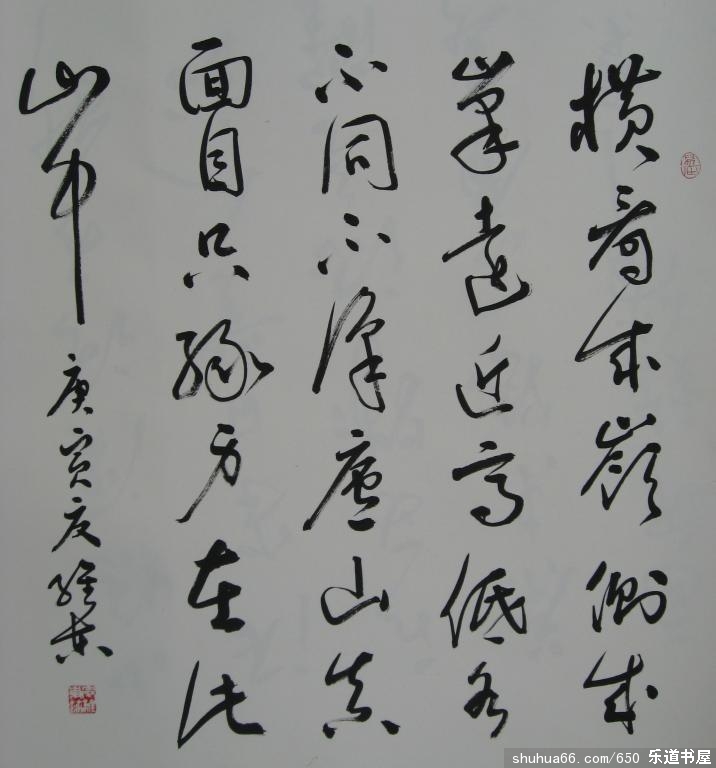 橫看成嶺側成
峯遠近高低各
不同不識廬山真
面目只緣身在此
山中
庚寅
shuhua66.com/650 乐道书屋